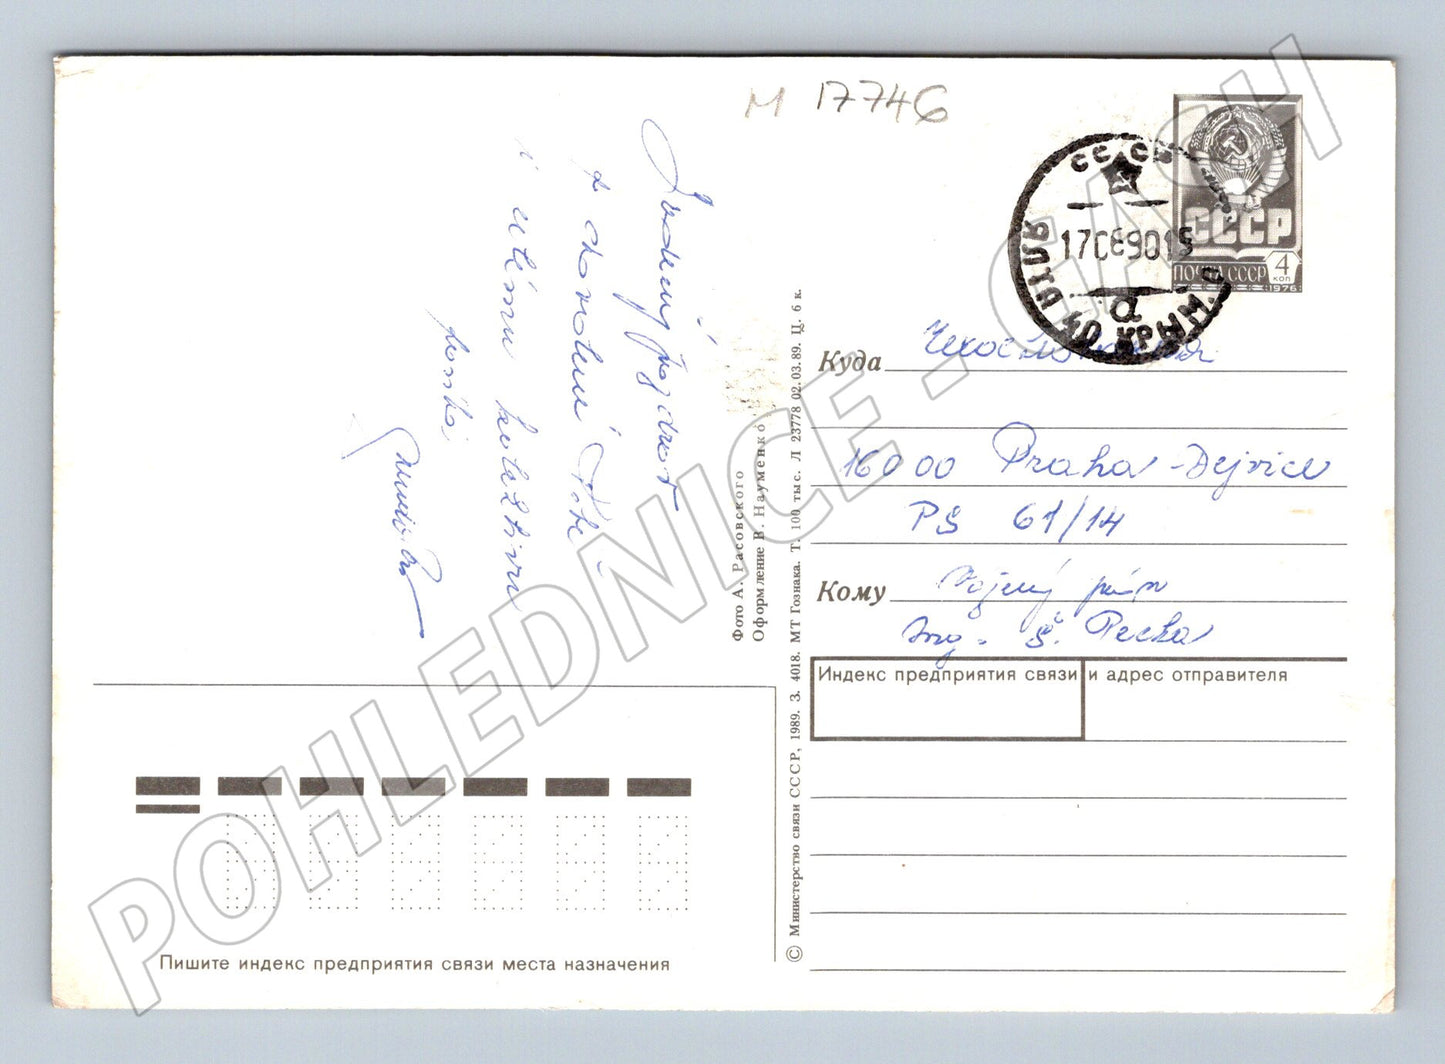 M 17746
СССР
17 08 90 15
ЯЛТА 40 КРЫМ. О
а
СССР
ПОЧТА СССР
4 КОП
1976
Куда Чехословакия
160 00 Praha-Dejvice
PS 61/14
Кому Vážený pán
Ing. Š. Pecka
Индекс предприятия связи и адрес отправителя
Srdečný pozdrav
z dovolené Tobě
i všem
Фото А. Расовского
Оформление В. Науменко
© Министерство связи СССР, 1989. З. 4018. МТ Гознака. Т. 100 тыс. Л 23778 02.03.89. Ц. 6 к.
Пишите индекс предприятия связи места назначения
POHLEDNICE - GASH